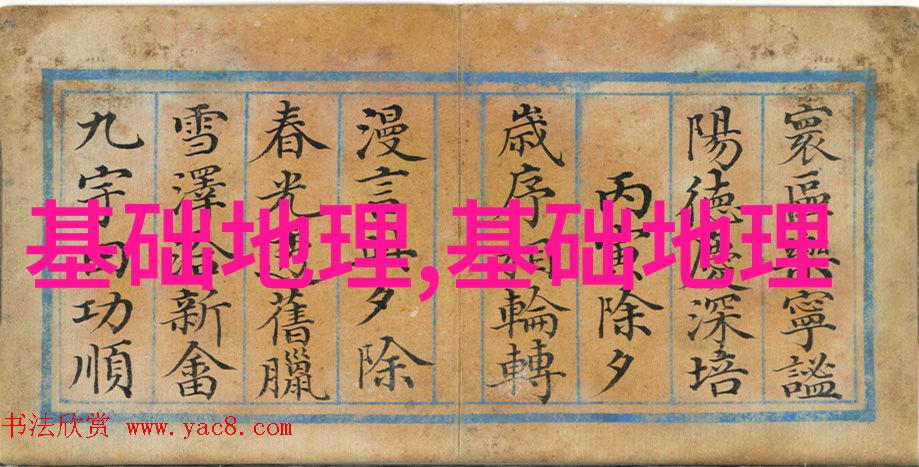 寰區樂寧謐
陽德慶深培
丙寅除夕
歲序輪轉
漫言夕除
春光舊臘
雪澤洽新畬
九宇功順
基础地理,基础地理
书法欣赏 www.yac8.com